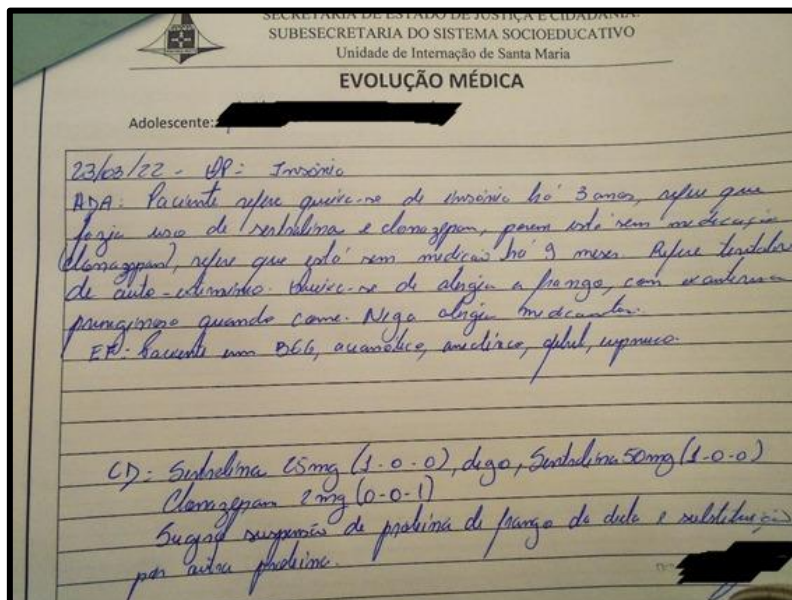 SECRETARIA DE ESTADO DE JUSTIÇA E CIDADANIA.
SUBSECRETARIA DO SISTEMA SOCIOEDUCATIVO
Unidade de Internação de Santa Maria
EVOLUÇÃO MÉDICA
Adolescente:
23/03/22 - QP: Insônia
ADA: Paciente refere queixa-se de insônia há 3 anos, refere que
fazia uso de sertralina e clonazepam, porem está sem medicação
(clonazepam), refere que está sem medicação há 9 meses. Refere tentativa
de auto-extermínio. Queixa-se de alergia a frango, com exantema
pruriginoso quando come. Nega alergia
EF: Paciente em BEG, acianótico, anictérico, afebril, eupneico.
CD: Sertralina 25mg (1-0-0), digo, Sertralina 50mg (1-0-0)
Clonazepam 2mg (0-0-1)
Sugiro suspensão de proteína de frango da dieta e substituição
por outra proteína.